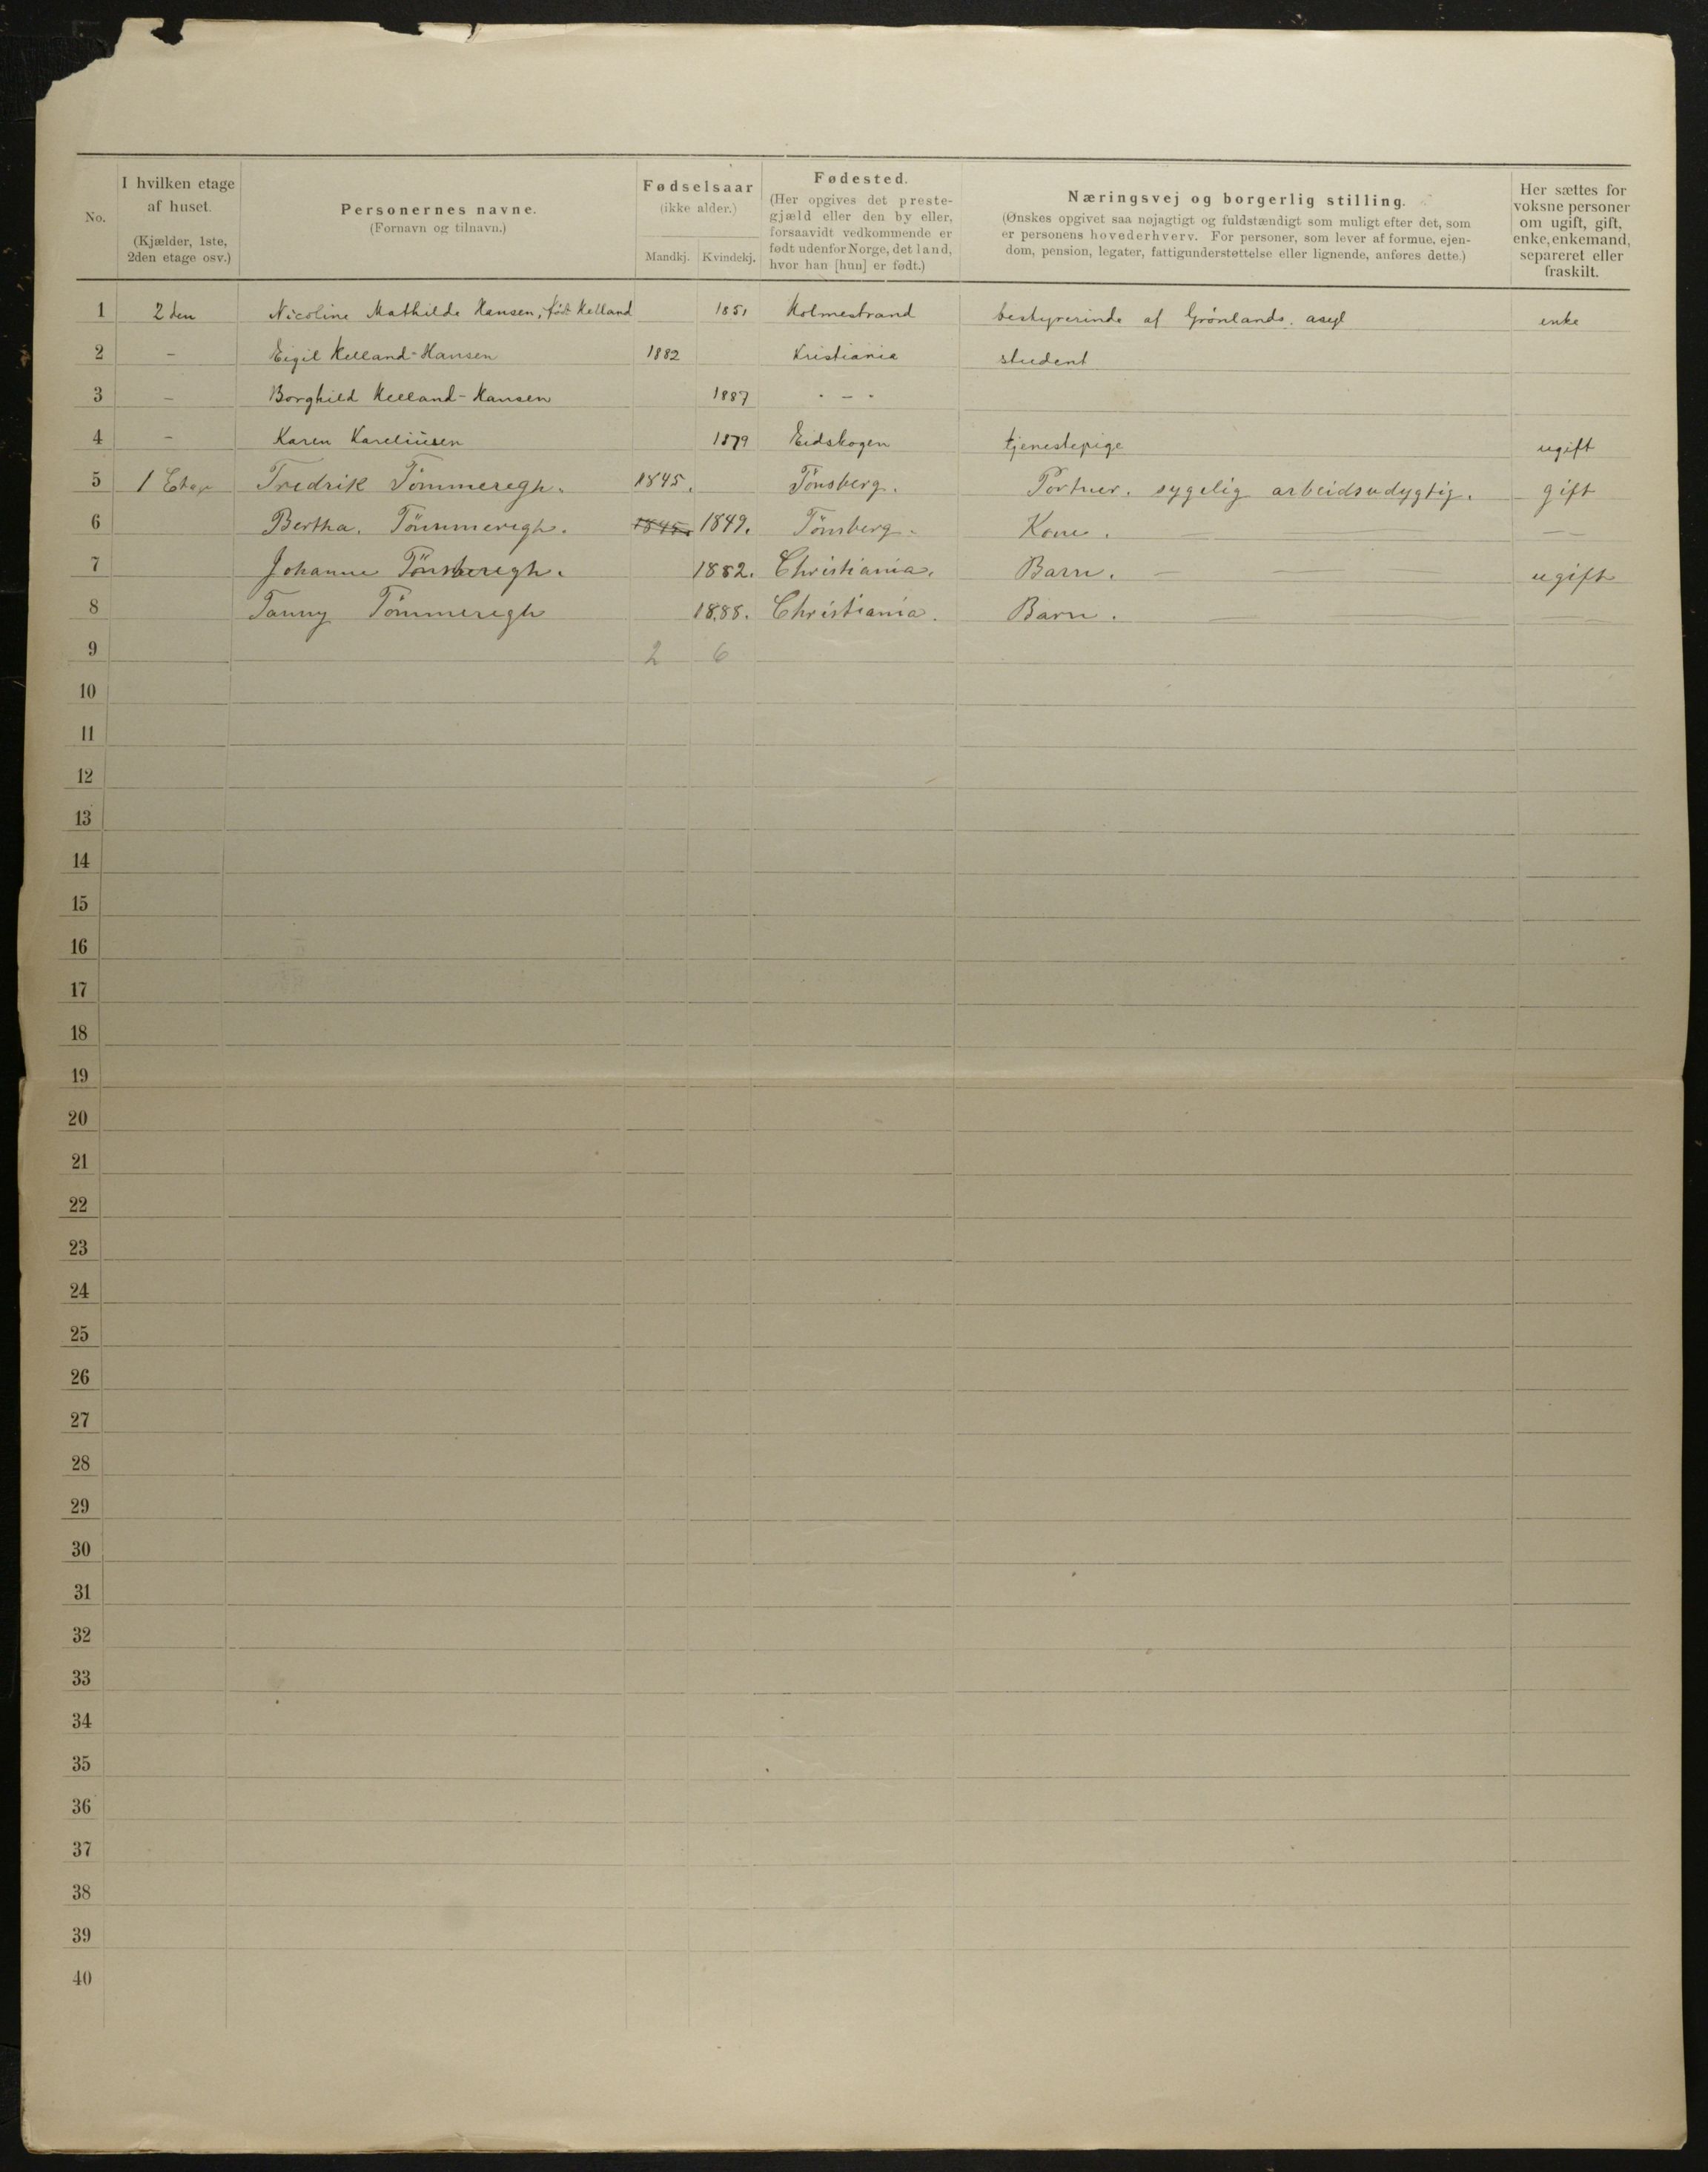 No.
I hvilken etage
af huset.
(Kjælder, 1ste,
2den etage osv.)
Personernes navne.
(Fornavn og tilnavn.)
Fødselsaar
(ikke alder.)
Mandkj. Kvindekj.
Fødested.
(Her opgives det preste-
gjæld eller den by eller,
forsaavidt vedkommende er
født udenfor Norge, det land,
hvor han [hun] er født.)
Næringsvej og borgerlig stilling.
(Ønskes opgivet saa nøjagtigt og fuldstændigt som muligt efter det, som
er personens hovederhverv. For personer, som lever af formue, ejen-
dom, pension, legater, fattigunderstøttelse eller lignende, anføres dette.)
Her sættes for
voksne personer
om ugift, gift,
enke, enkemand,
separeret eller
fraskilt.
1 2den Nicoline Mathilde Hansen, født Kelland 1851 Holmestrand bestyrerinde af Grønlands. asyl enke
2 – Eigil Kelland-Hansen 1882 Kristiania student
3 – Borghild Kelland-Hansen 1887 " – "
4 – Karen Kareliusen 1879 Eidskogen tjenestepige ugift
5 1 Etage Fredrik Tömmeregh. 1845. Tönsberg. Portner. sygelig arbeidsudygtig. gift
6 Bertha. Tömmeregh. 1845. 1849. Tönsberg. Kone. — — —
7 Johanne Tönsberegh. 1882. Christiania. Barn. — — ugift
8 Fanny Tömmeregh 1888. Christiania. Barn. — — —
9 2 6
10
11
12
13
14
15
16
17
18
19
20
21
22
23
24
25
26
27
28
29
30
31
32
33
34
35
36
37
38
39
40